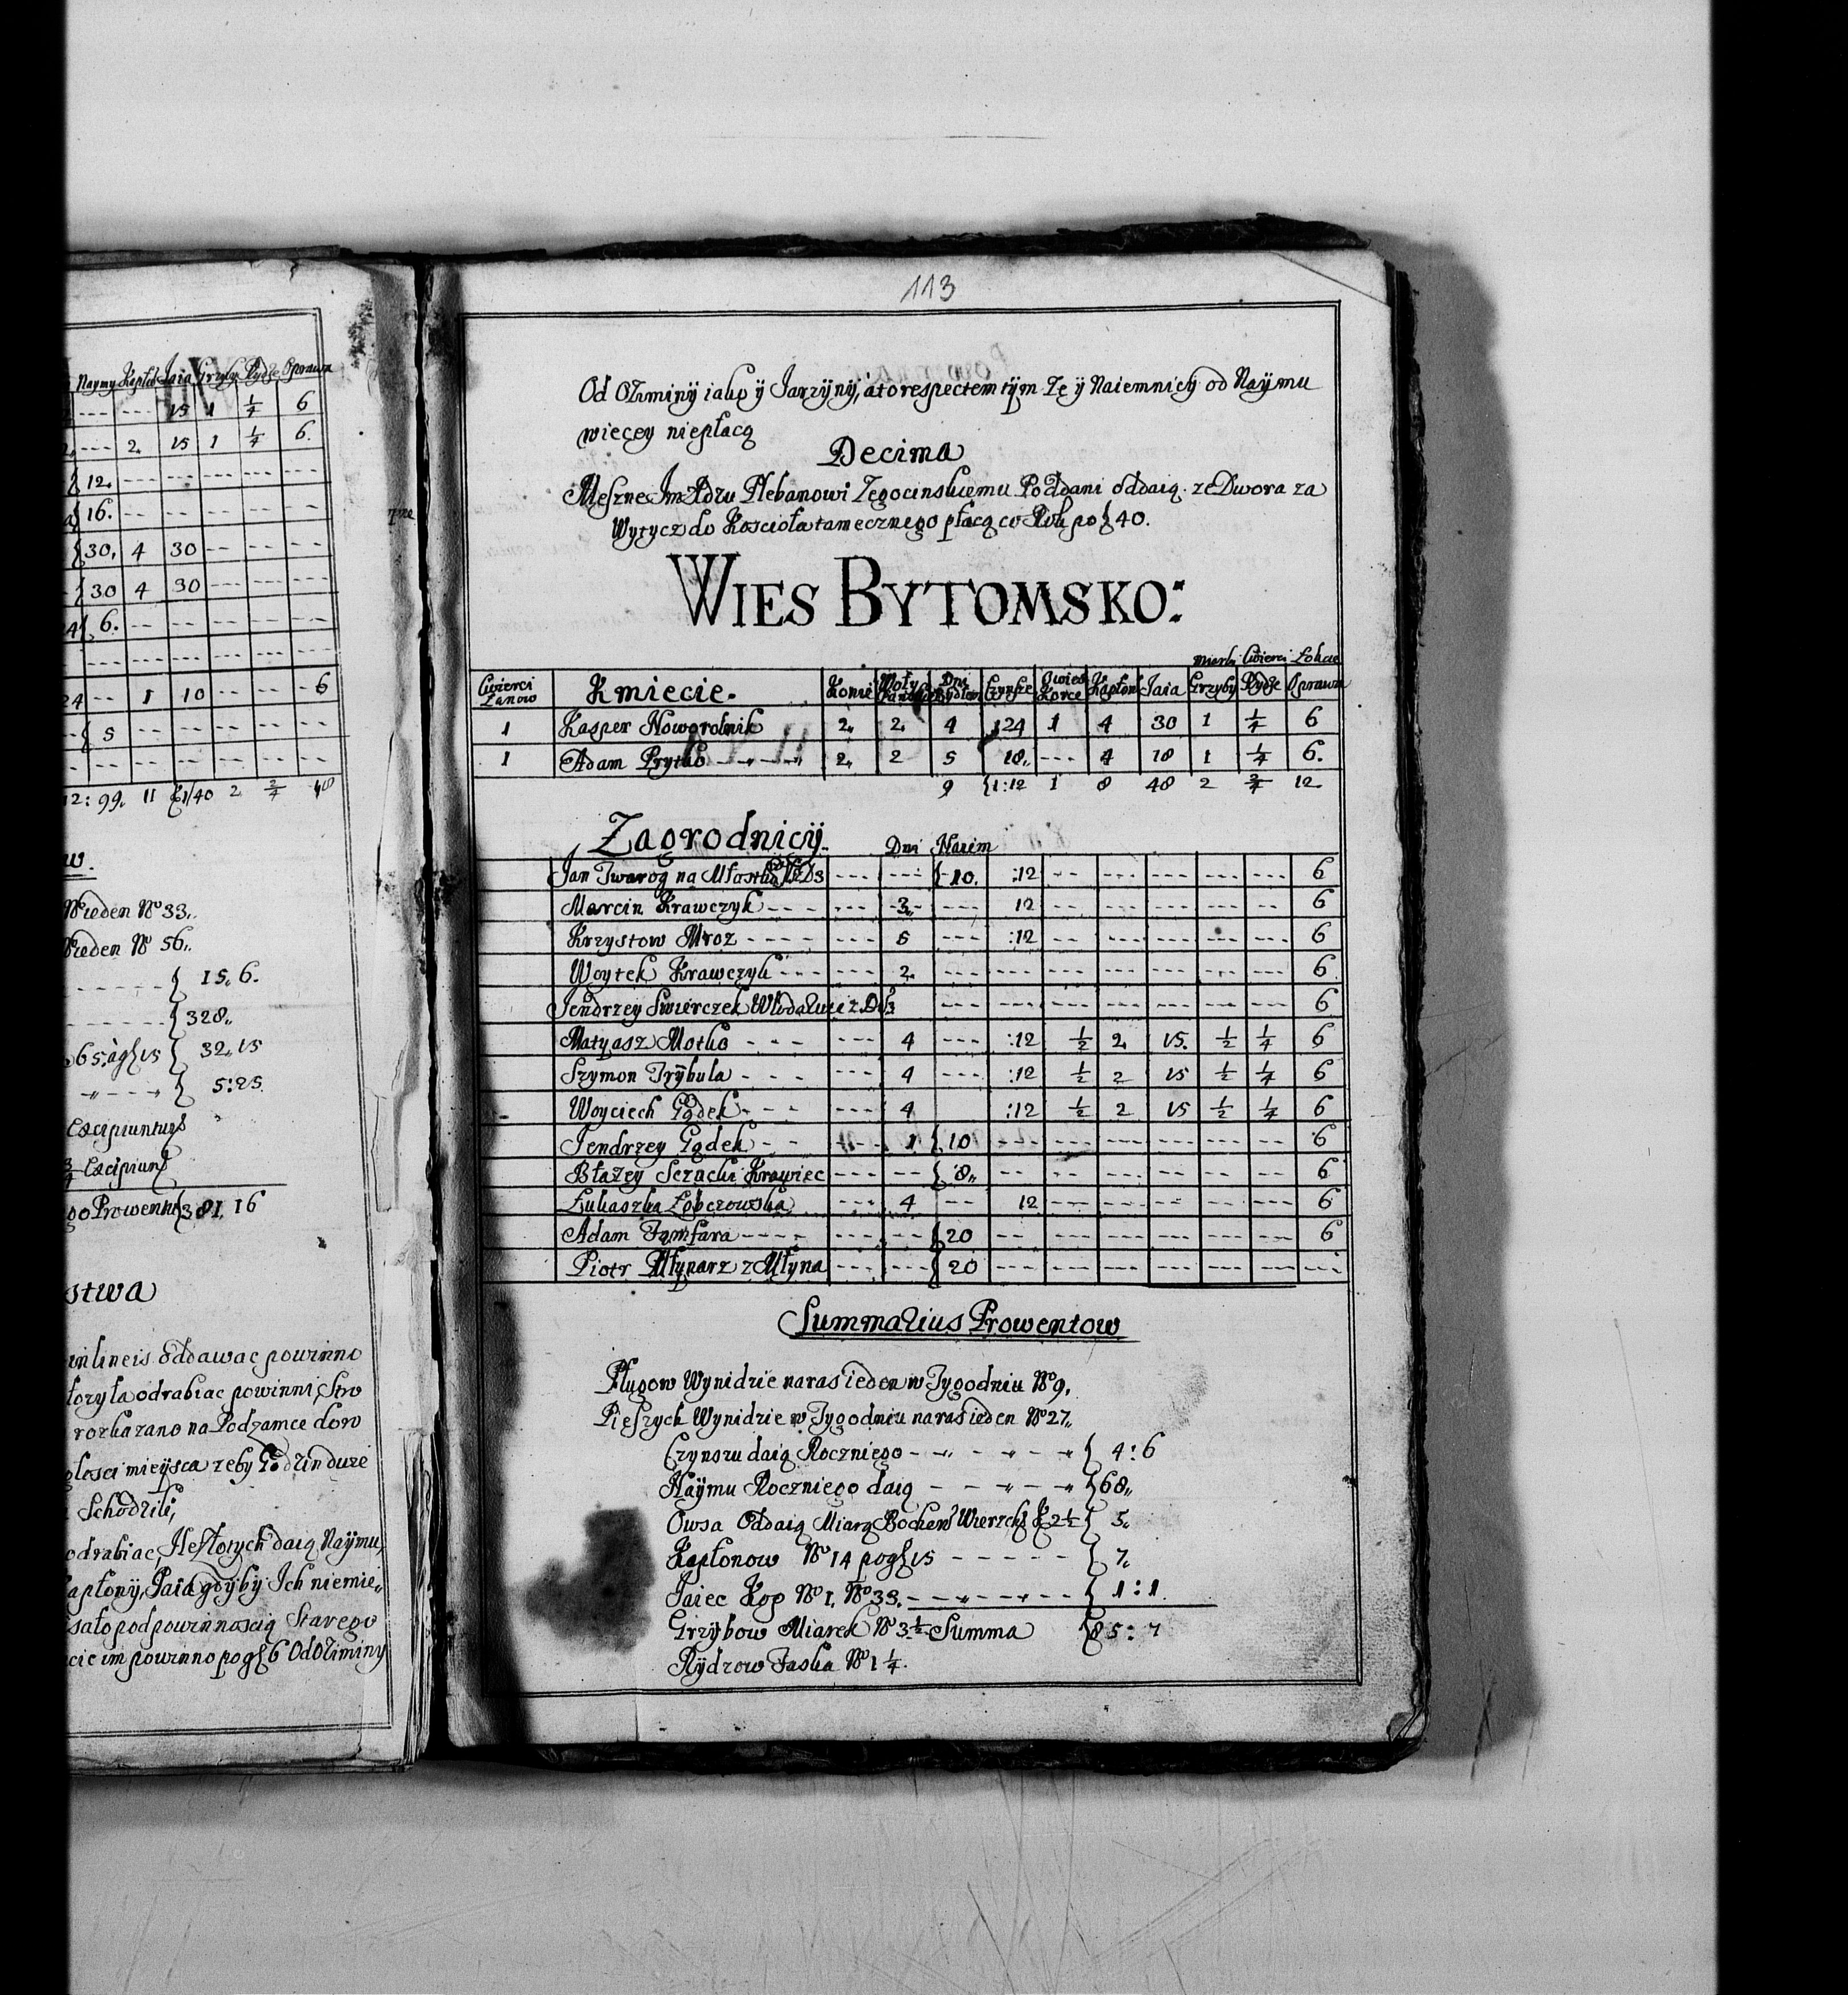 Naymy Kapłon Jaia Grzyby Rydze Oprawa
--- --- 15 1 1/4 6
--- 2. 15 1 1/4 6.
12. --- --- --- --- ---
16. -- -- -- -- --
30, 4 30 -- -- --
30 4 30 --- --- ---
24 6. -- -- -- -- --
--- --- --- --- --- ---
24 -- 1 10 -- -- 6
5 -- -- -- -- --
-- -- -- -- -- --
12: 99. 11 40 2 2/4 48
w.
Wieden No 33..
Wieden No 56..
15. 6.
328.
65: 15 32. 15
5:25.
Excipiuntur
3/4 Excipiunt
Prowentu 381, 16
stwa
in lineis oddawac powinno
odrabiac powinni, Stro
rozkazano na Podzamce dorw
mieysca zeby Godzin duze
Schodzili,
odrabiac, daią Naymu,
Kapłony, Jaia gdyby Ich niemie,,
pod powinnoscią Starego
im powinno po gł 6 Od Oziminy
113
Od Oziminy iako y Jarzyny, a to respectem tym Ze y Naiemnicy od Naymu
wiecey niepłacą
Decima
Meszne Jm Xdzu Plebanowi Zegocinskiemu Poddani oddaią. ze Dwora za
Wytycz do Koscioła tamecznego płacą co Rok po 40.
WIES BYTOMSKO:
Miarki Cwierci Łokcie
Cwierci Łanow Kmiecie. Konie Woły Dni Bydłem Czynsze Owies Korce Kapłon Jaia Grzyby Rydze Oprawa
1 Kasper Noworolnik 2. 2. 4 24 1 4 30 1 1/4 6
1 Adam Prytko 2. 2 5 18. --- 4 18 1 1/4 6.
9 1:12 1 8 48 2 2/4 12.
Zagrodnicy. Dni Naiem
Jan Twarog na --- --- 10. :12 -- --- --- --- --- 6
Marcin Krawczyk --- --- 3. --- 12 --- --- --- --- -- 6
Krzystow Mroz ---- --- 5 --- :12 -- --- --- --- --- 6
Woytek Krawczyk --- --- 2. --- --- --- --- --- --- --- 6
Jendrzey Swierczek --- --- --- --- --- --- --- 6
Matyasz Motko --- --- 4 --- :12 1/2 2. 15. 1/2 1/4 6
Szymon Trybula --- --- 4 --- :12 1/2 2 15 1/2 1/4 6
Woyciech Gądek --- --- 4 :12 1/2 2 15 1/2 1/4 6
Jendrzey Gądek -- --- 1 10 --- --- --- --- --- -- 6
Błazey Krawiec --- -- 8. -- -- --- --- -- -- 6
Łukaszka Łobczowska --- 4 -- 12 --- --- --- --- --- 6
Adam ---- --- -- 20 -- --- --- --- --- --- 6
Piotr Młynarz z Młyna --- --- 20 --- --- --- --- --- --- ---
Summarius Prowentow
Pługow Wynidzie naras ieden w Tygodniu No 9.
Pieszych Wynidzie w Tygodniu naras ieden No 27.
Czynszu daią Roczniego 4:6
Naymu Roczniego daią 68.
Owsa Oddaią Miarą Bochen Wierzch 2 1/2 5.
Kapłonow No 14 po gł 15 7.
Jaiec Kop No 1. No 33. 1:1.
Grzybow Miarek No 3 1/2 Summa 85:7
Rydzow Faska No 1 1/4.